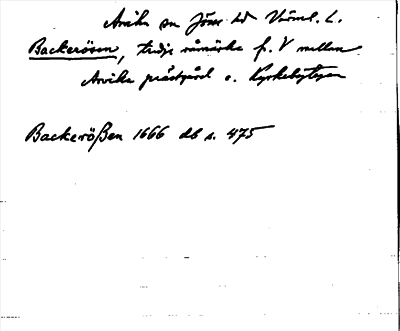 Arvika sn Jösse hd Värml. l.
Backerösen, tredje råmärke fr. V mellan
Arvika prästgård o. Kyrkebytegen
Backerößen 1666 db s. 475